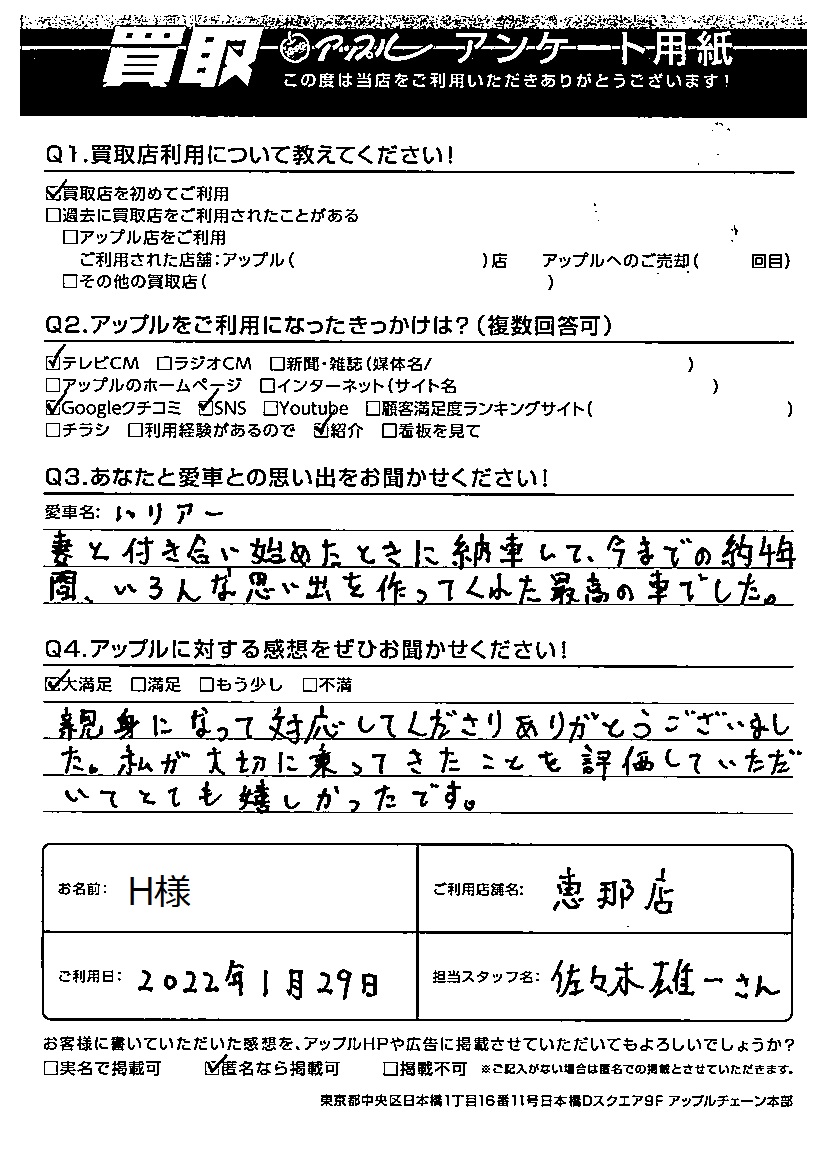 買取 アップル アンケート用紙
この度は当店をご利用いただきありがとうございます!
Q1.買取店利用について教えてください!
☑買取店を初めてご利用
□過去に買取店をご利用されたことがある
□アップル店をご利用
ご利用された店舗:アップル( )店 アップルへのご売却( 回目)
□その他の買取店( )
Q2.アップルをご利用になったきっかけは?(複数回答可)
☑テレビCM □ラジオCM □新聞・雑誌(媒体名/ )
□アップルのホームページ □インターネット(サイト名 )
☑Googleクチコミ ☑SNS □Youtube □顧客満足度ランキングサイト( )
□チラシ □利用経験があるので ☑紹介 □看板を見て
Q3.あなたと愛車との思い出をお聞かせください!
愛車名: ハリアー
妻と付き合い始めたときに納車して、今までの約4年
間、いろんな思い出を作ってくれた最高の車でした。
Q4.アップルに対する感想をぜひお聞かせください!
☑大満足 □満足 □もう少し □不満
親身になって対応してくださりありがとうございまし
た。私が大切に乗ってきたことを評価していただ
いてとても嬉しかったです。
お名前: H様 ご利用店舗名: 恵那店
ご利用日: 2022年1月29日 担当スタッフ名: 佐々木雄一さん
お客様に書いていただいた感想を、アップルHPや広告に掲載させていただいてもよろしいでしょうか?
□実名で掲載可 ☑匿名なら掲載可 □掲載不可 ※ご記入がない場合は匿名での掲載とさせていただきます。
東京都中央区日本橋1丁目16番11号日本橋Dスクエア9F アップルチェーン本部